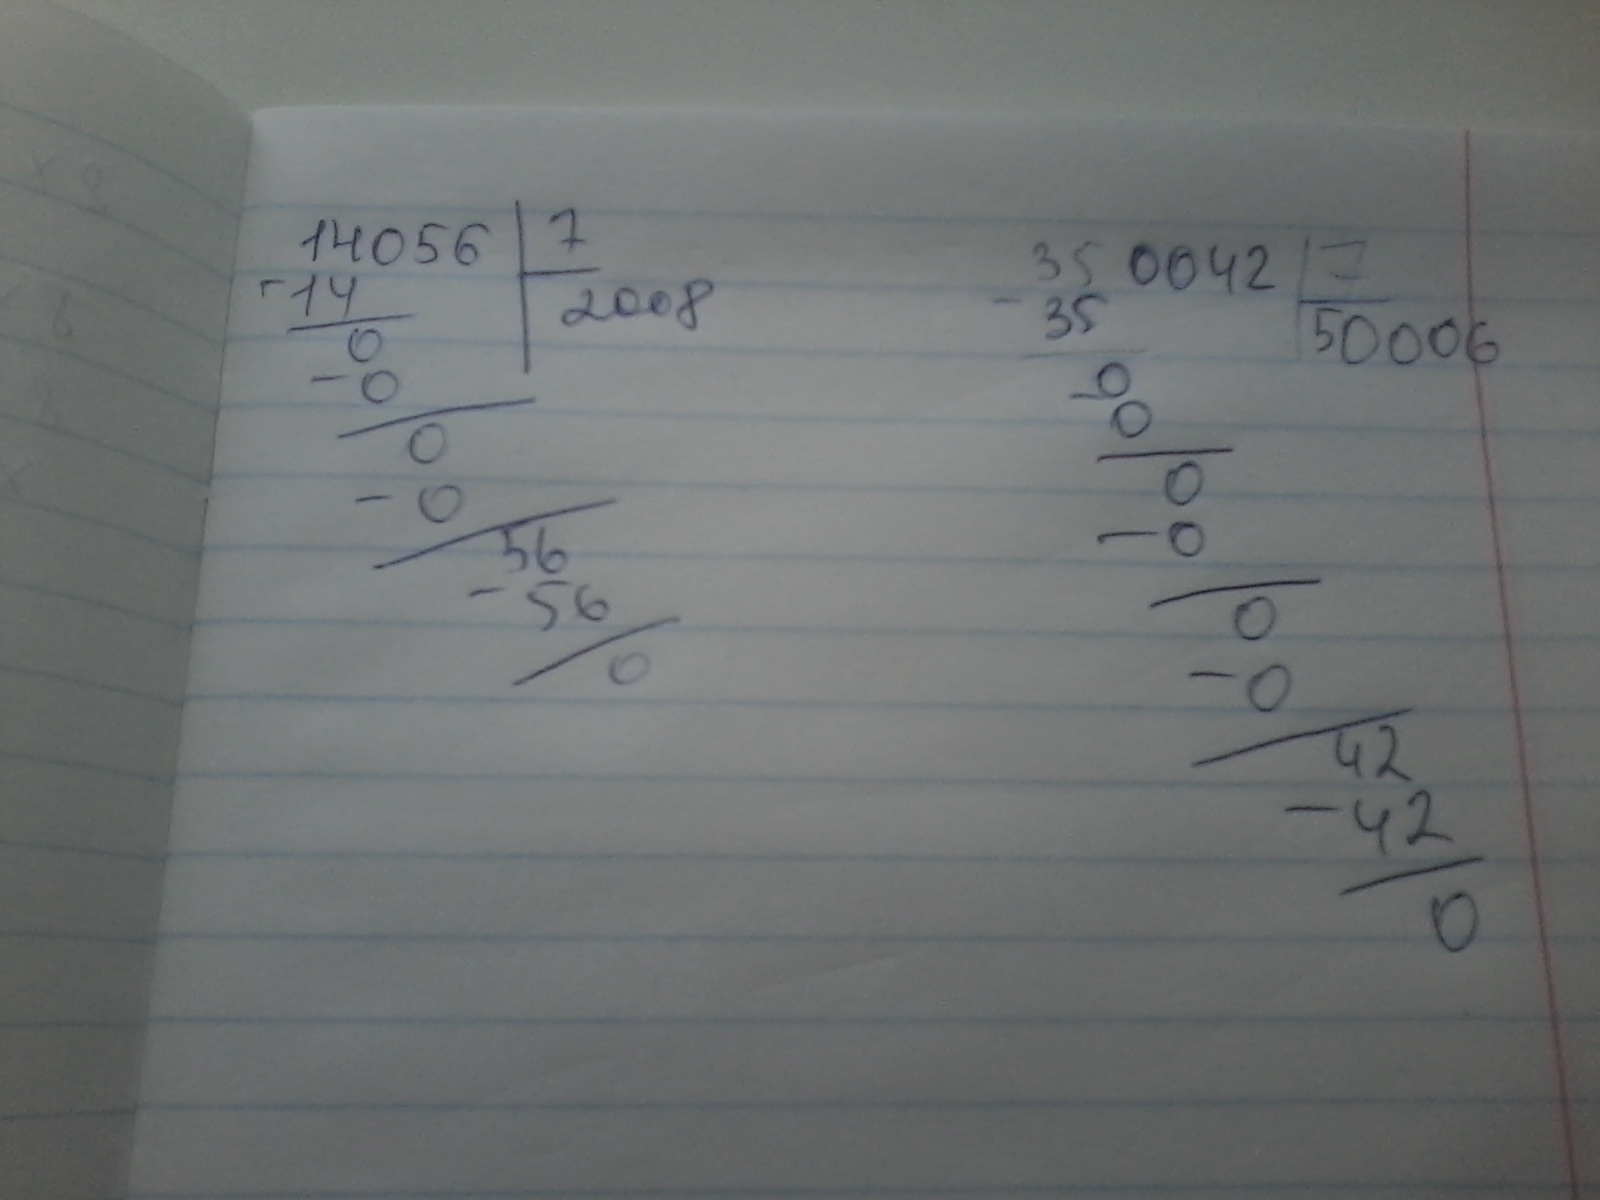 14056 7
-14 2008
0
-0
0
-0
56
-56
0
350042 7
-35 50006
-0
0
0
-0
0
-0
42
-42
0